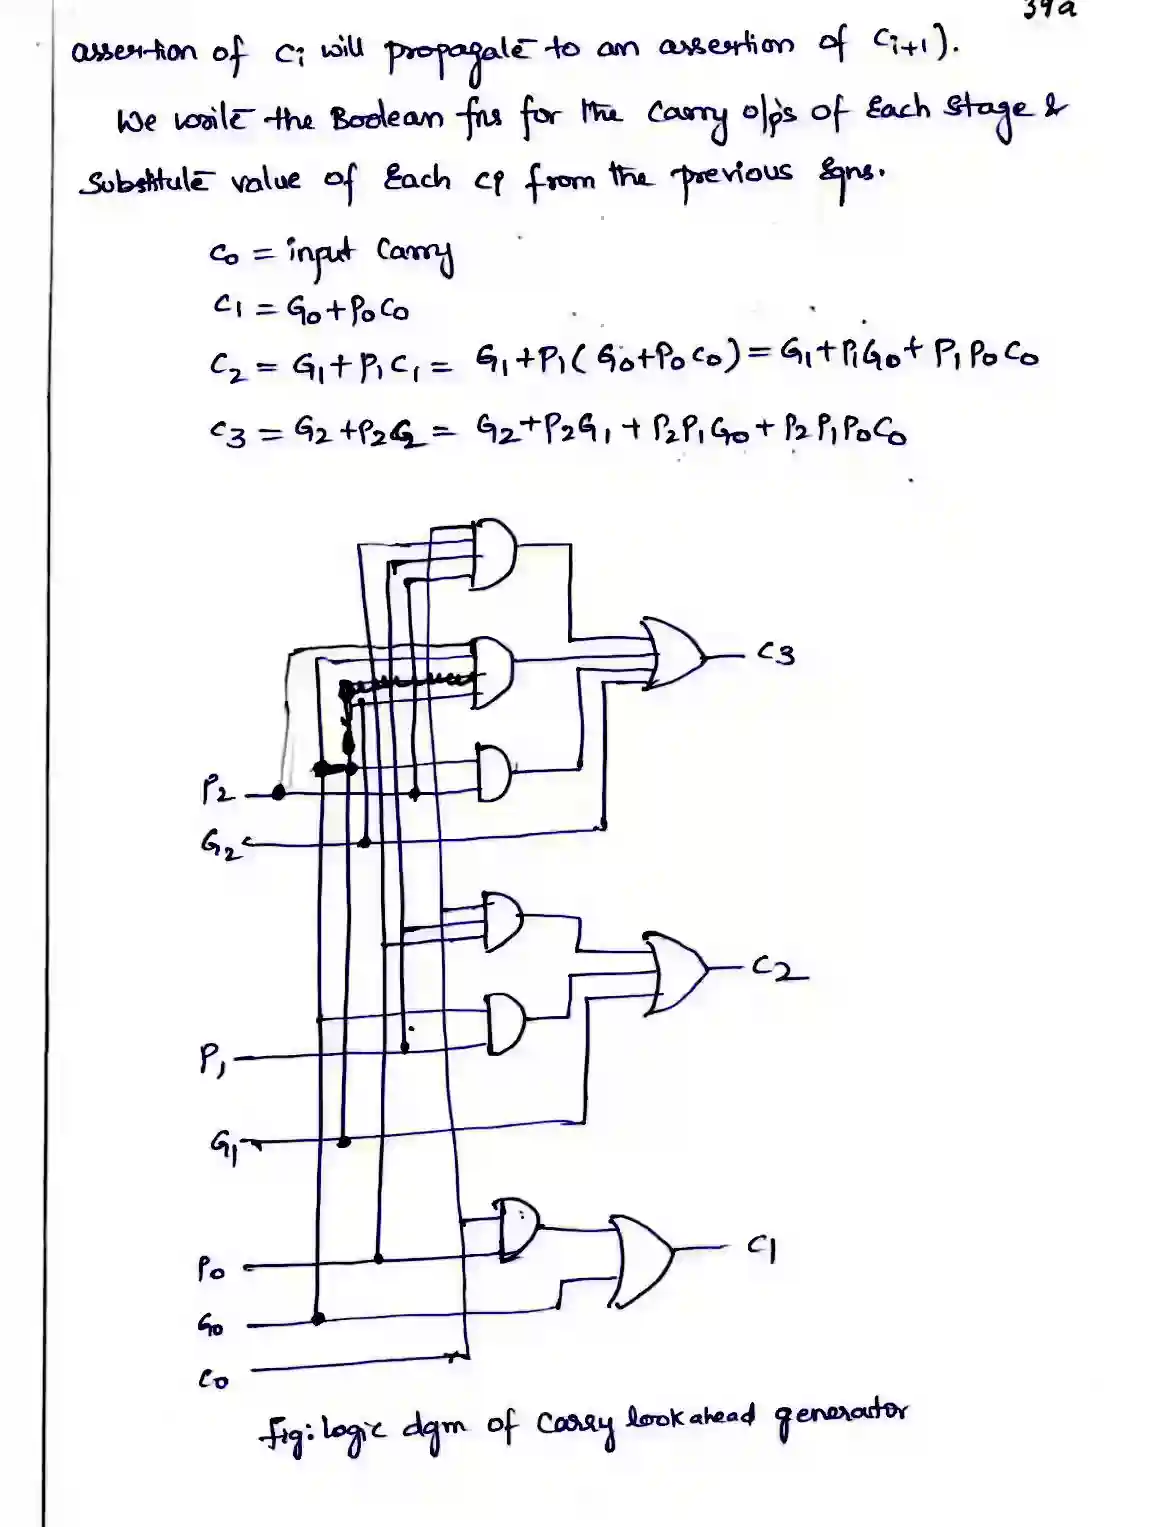 39a
assertion of Ci will propagate to an assertion of Ci+1).
We write the Boolean fns for the Carry o/p's of Each Stage &
Substitute value of Each Ci from the previous Eqns.
C0 = input Carry
C1 = G0+P0C0
C2 = G1+P1C1 = G1+P1(G0+P0C0) = G1+P1G0+P1P0C0
C3 = G2+P2C2 = G2+P2G1+P2P1G0+P2P1P0C0
C3
P2
G2
C2
P1
G1
C1
P0
G0
C0
Fig: logic dgm of Carry look ahead generator